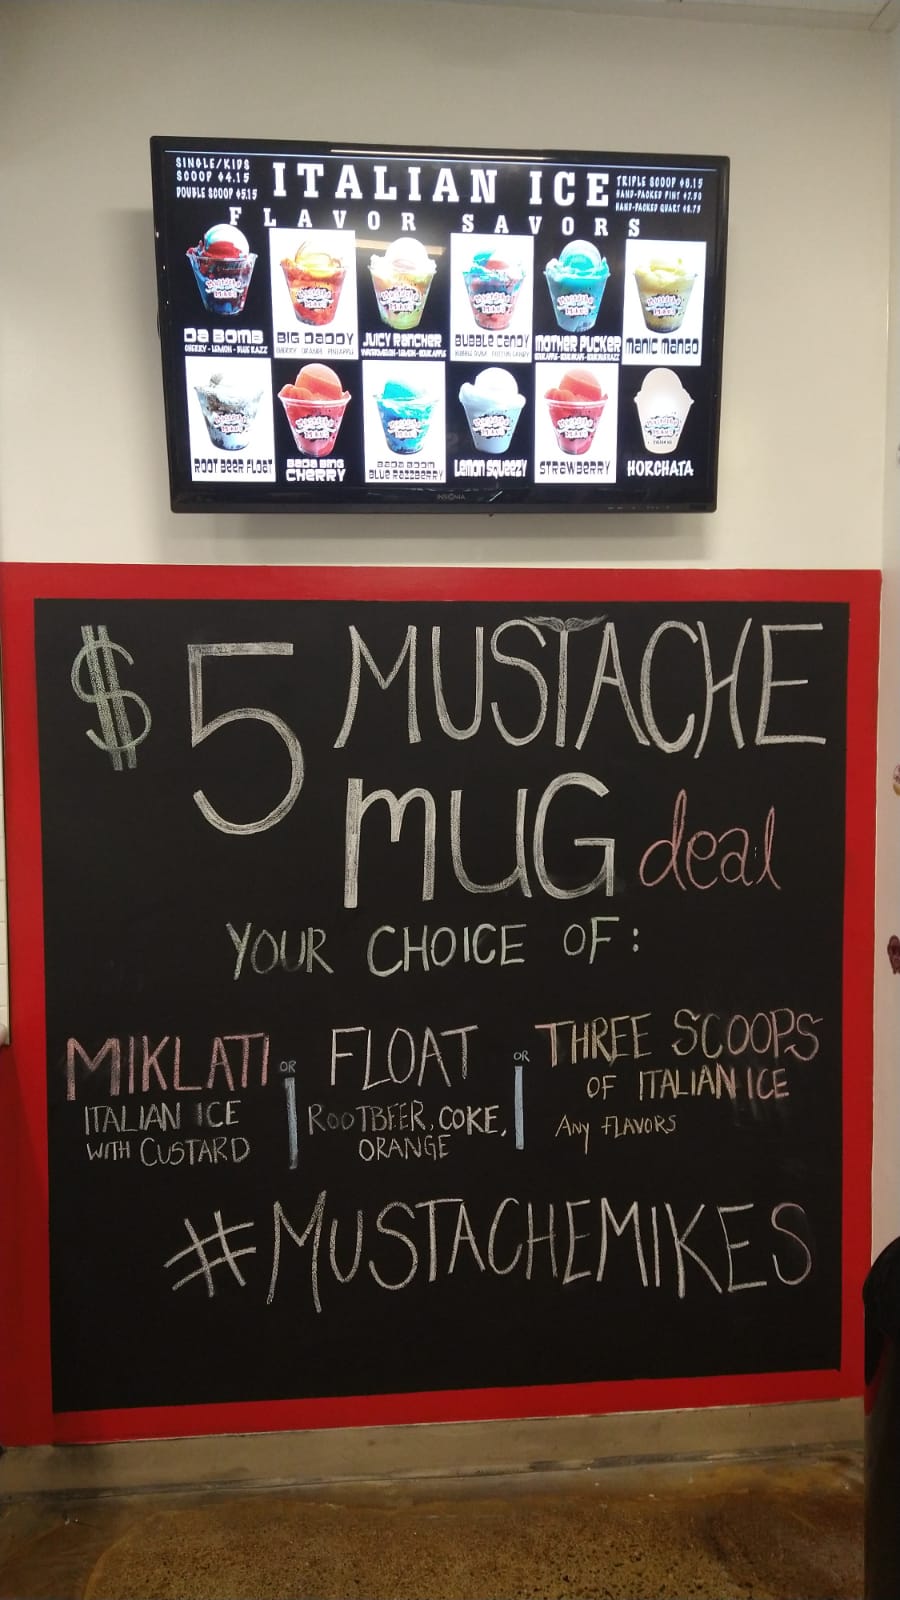 SINGLE/KIDS
SCOOP $4.15
DOUBLE SCOOP $5.15
ITALIAN ICE
TRIPLE SCOOP $6.15
HAND-PACKED PINT $7.50
HAND-PACKED QUART
FLAVOR SAVORS
DA BOMB
CHERRY - LEMON - BLUE RAZZ
BIG DADDY
CHERRY - ORANGE - PINEAPPLE
JUICY RANCHER
WATERMELON - LEMON - SOUR APPLE
BUBBLE CANDY
BUBBLE GUM - COTTON CANDY
MOTHER PUCKER
MANIC MANGO
ROOT BEER FLOAT
BADA BING
CHERRY
BLUE RAZZBERRY
LEMON SQUEEZY
STRAWBERRY
HORCHATA
INSIGNIA
$5 MUSTACHE
MUG deal
YOUR CHOICE OF:
MIKLATI OR FLOAT OR THREE SCOOPS
OF ITALIAN ICE
ITALIAN ICE ROOTBEER, COKE, ANY FLAVORS
WITH CUSTARD ORANGE
#MUSTACHEMIKES